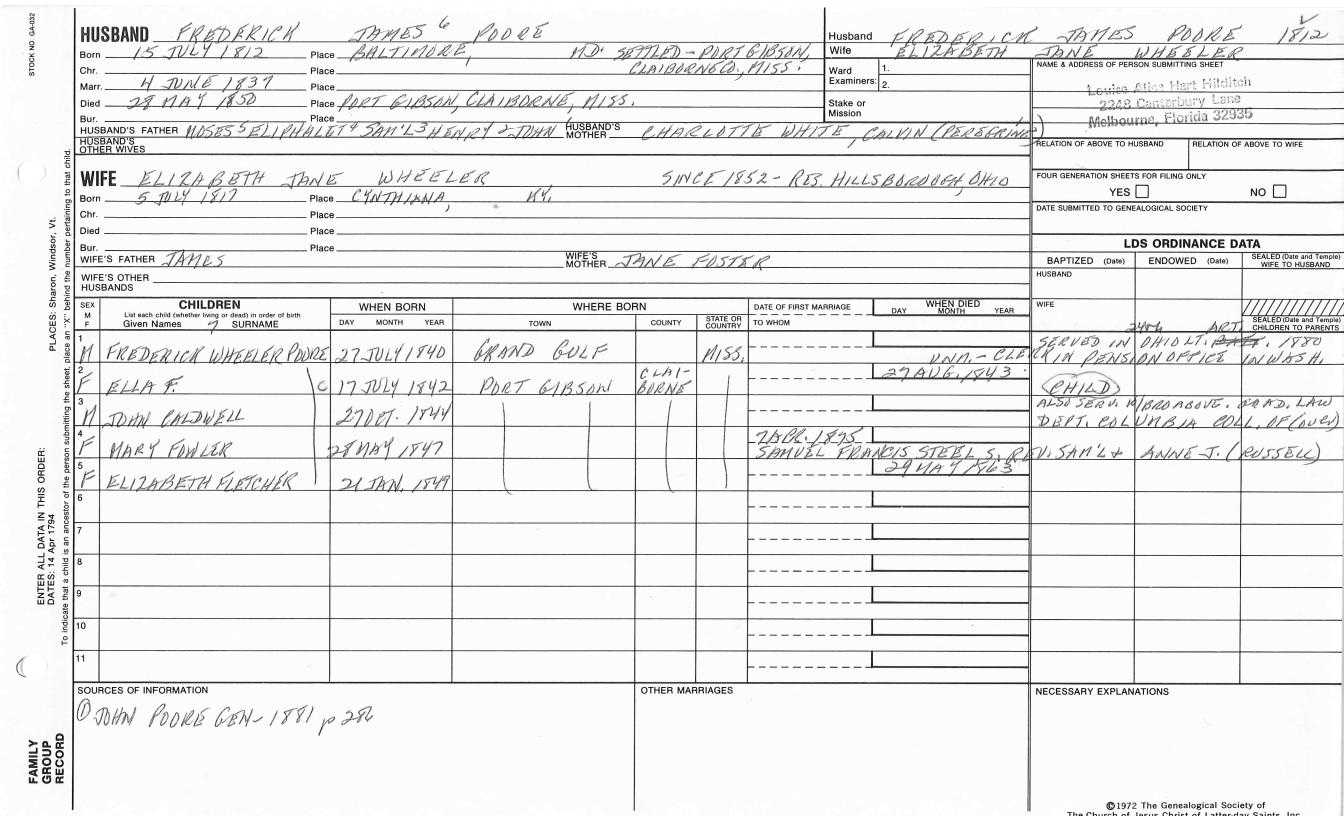 STOCK NO. GA-032
HUSBAND FREDERICK JAMES 6 POORE
Born 15 JULY 1812 Place BALTIMORE, MD. SETTLED - PORT GIBSON,
Chr. Place CLAIBORNE CO., MISS.
Marr. 4 JUNE 1839 Place
Died 28 MAY 1850 Place PORT GIBSON, CLAIBORNE, MISS.
Bur. Place
HUSBAND'S FATHER MOSES 5 ELIPHALET 4 SAM'L 3 HENRY 2 JOHN HUSBAND'S MOTHER CHARLOTTE WHITE, CALVIN (PEREGRINE)
HUSBAND'S OTHER WIVES
Husband FREDERICK JAMES POORE 1812
Wife ELIZABETH JANE WHEELER
Ward Examiners: 1. 2.
Stake or Mission
NAME & ADDRESS OF PERSON SUBMITTING SHEET
Louise Hart Hilditch
2248 Canterbury Lane
Melbourne, Florida 32935
RELATION OF ABOVE TO HUSBAND RELATION OF ABOVE TO WIFE
FOUR GENERATION SHEETS FOR FILING ONLY
YES NO
DATE SUBMITTED TO GENEALOGICAL SOCIETY
WIFE ELIZABETH JANE WHEELER SINCE 1852 - RES. HILLSBOROUGH, OHIO
Born 5 JULY 1817 Place CYNTHIANA, KY.
Chr. Place
Died Place
Bur. Place
WIFE'S FATHER JAMES WIFE'S MOTHER JANE FOSTER
WIFE'S OTHER HUSBANDS
LDS ORDINANCE DATA
BAPTIZED (Date) ENDOWED (Date) SEALED (Date and Temple) WIFE TO HUSBAND
HUSBAND
WIFE
SEALED (Date and Temple) CHILDREN TO PARENTS
SEX M F CHILDREN WHEN BORN WHERE BORN DATE OF FIRST MARRIAGE WHEN DIED
List each child (whether living or dead) in order of birth
Given Names 7 SURNAME DAY MONTH YEAR TOWN COUNTY STATE OR COUNTRY TO WHOM DAY MONTH YEAR
24th ART.
1 M FREDERICK WHEELER POORE 27 JULY 1840 GRAND GULF MISS. SERVED IN OHIO LT. 1880
UNM. - CLERK IN PENSION OFFICE IN WASH.
2 F ELLA F. C 17 JULY 1842 PORT GIBSON CLAI-BORNE 27 AUG. 1843 (CHILD)
3 M JOHN CALDWELL 27 OCT. 1844 ALSO SERV. W/BRO ABOVE. GRAD. LAW
DEPT. COLUMBIA COLL. OF (OVER)
4 F MARY FOWLER 28 MAY 1847 7 APR. 1875
SAMUEL FRANCIS STEEL S. REV. SAM'L & ANNE J. (RUSSELL)
5 F ELIZABETH FLETCHER 21 JAN. 1849 29 MAY 1863
6
7
8
9
10
11
SOURCES OF INFORMATION
① JOHN POORE GEN - 1881 p 286
OTHER MARRIAGES
NECESSARY EXPLANATIONS
ENTER ALL DATA IN THIS ORDER:
PLACES: Sharon, Windsor, Vt.
DATES: 14 Apr 1794
To indicate that a child is an ancestor of the person submitting the sheet, place an "X" behind the number pertaining to that child.
FAMILY GROUP RECORD
©1972 The Genealogical Society of
The Church of Jesus Christ of Latter-day Saints, Inc.